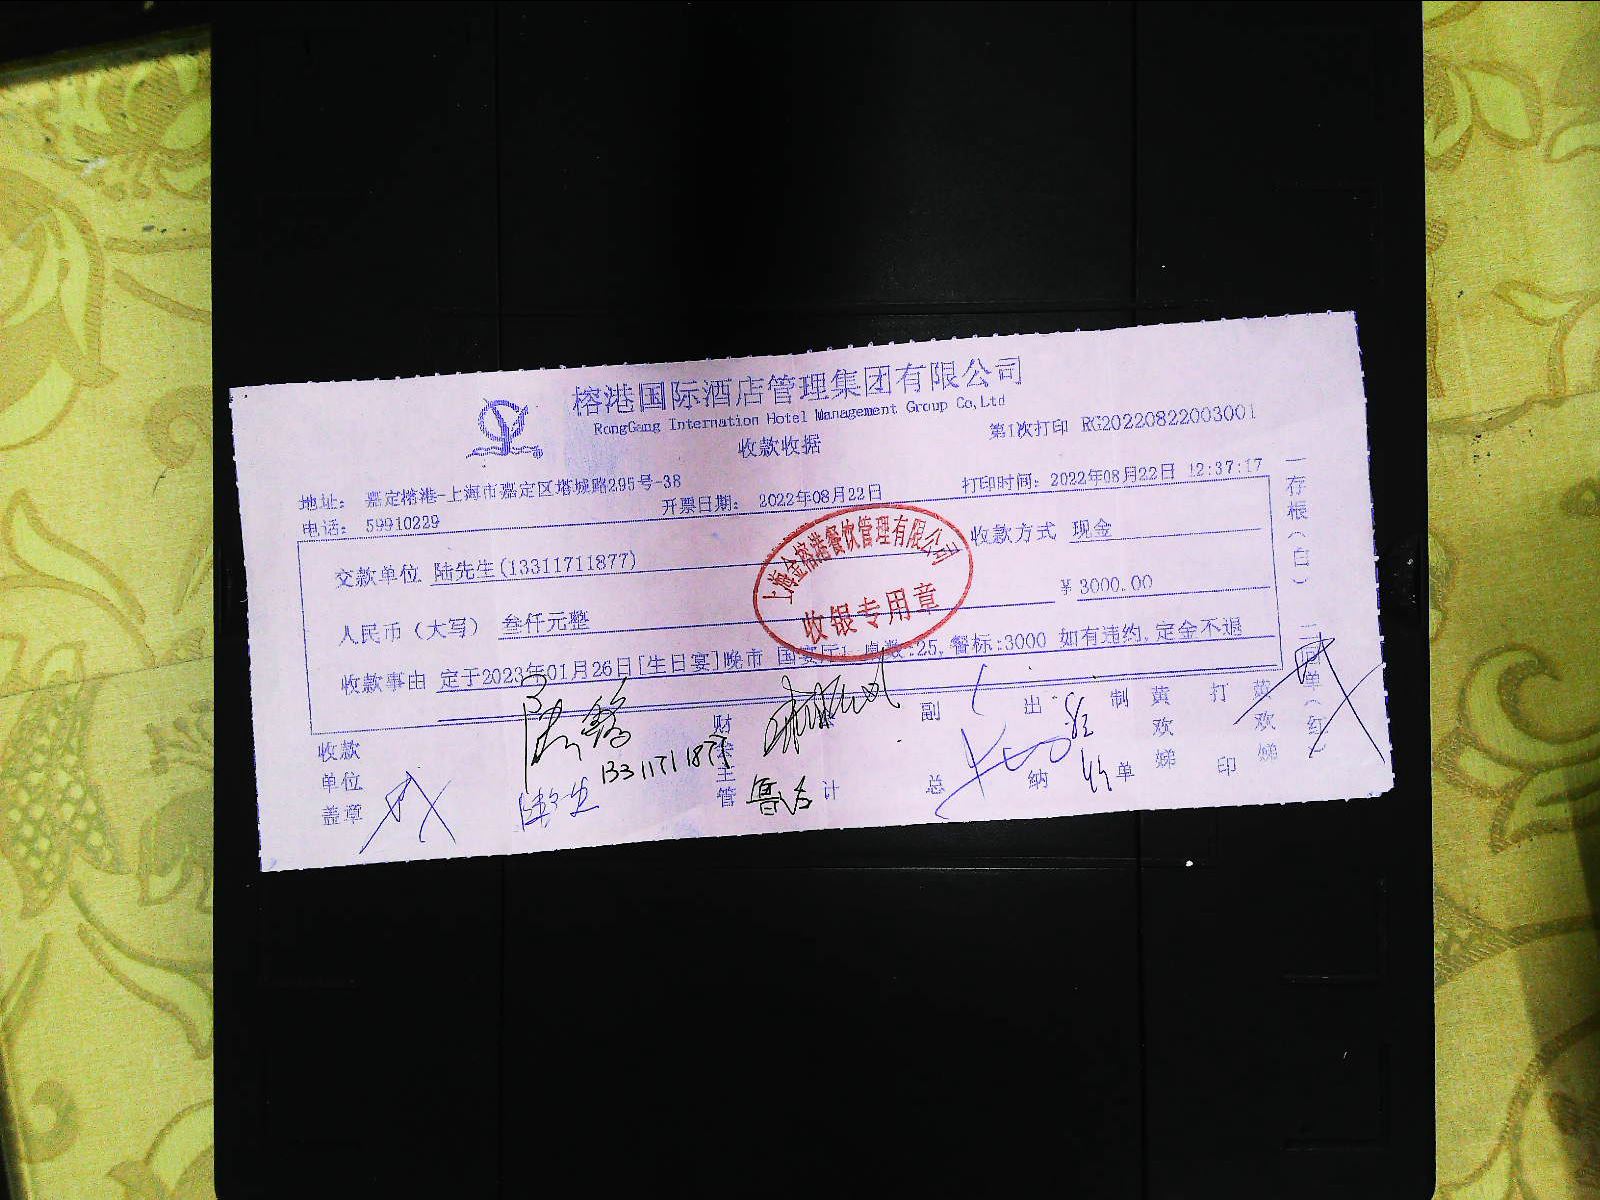 榕港国际酒店管理集团有限公司
RongGang Internation Hotel Management Group Co,Ltd
收款收据
第1次打印 RG20220822003001
地址: 嘉定榕港-上海市嘉定区塔城路295号-3B
电话: 59910229
开票日期: 2022年08月22日
打印时间: 2022年08月22日 12:37:17
交款单位 陆先生(13311711877)
收款方式 现金
人民币（大写） 叁仟元整
¥ 3000.00
收款事由 定于2023年01月26日[生日宴]晚市 国宴厅1 桌数:25,餐标:3000 如有违约,定金不退
上海金榕港餐饮管理有限公司
收银专用章
一存根(白) 二回单(红)
收款单位盖章
13311711877
财务主管
计
副总
出纳
制单
黄欢娣
打印
黄欢娣